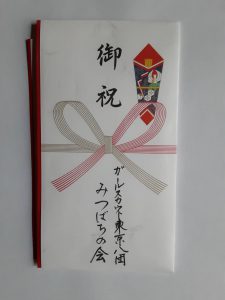 御祝
ガールスカウト東京八団
みつばちの会